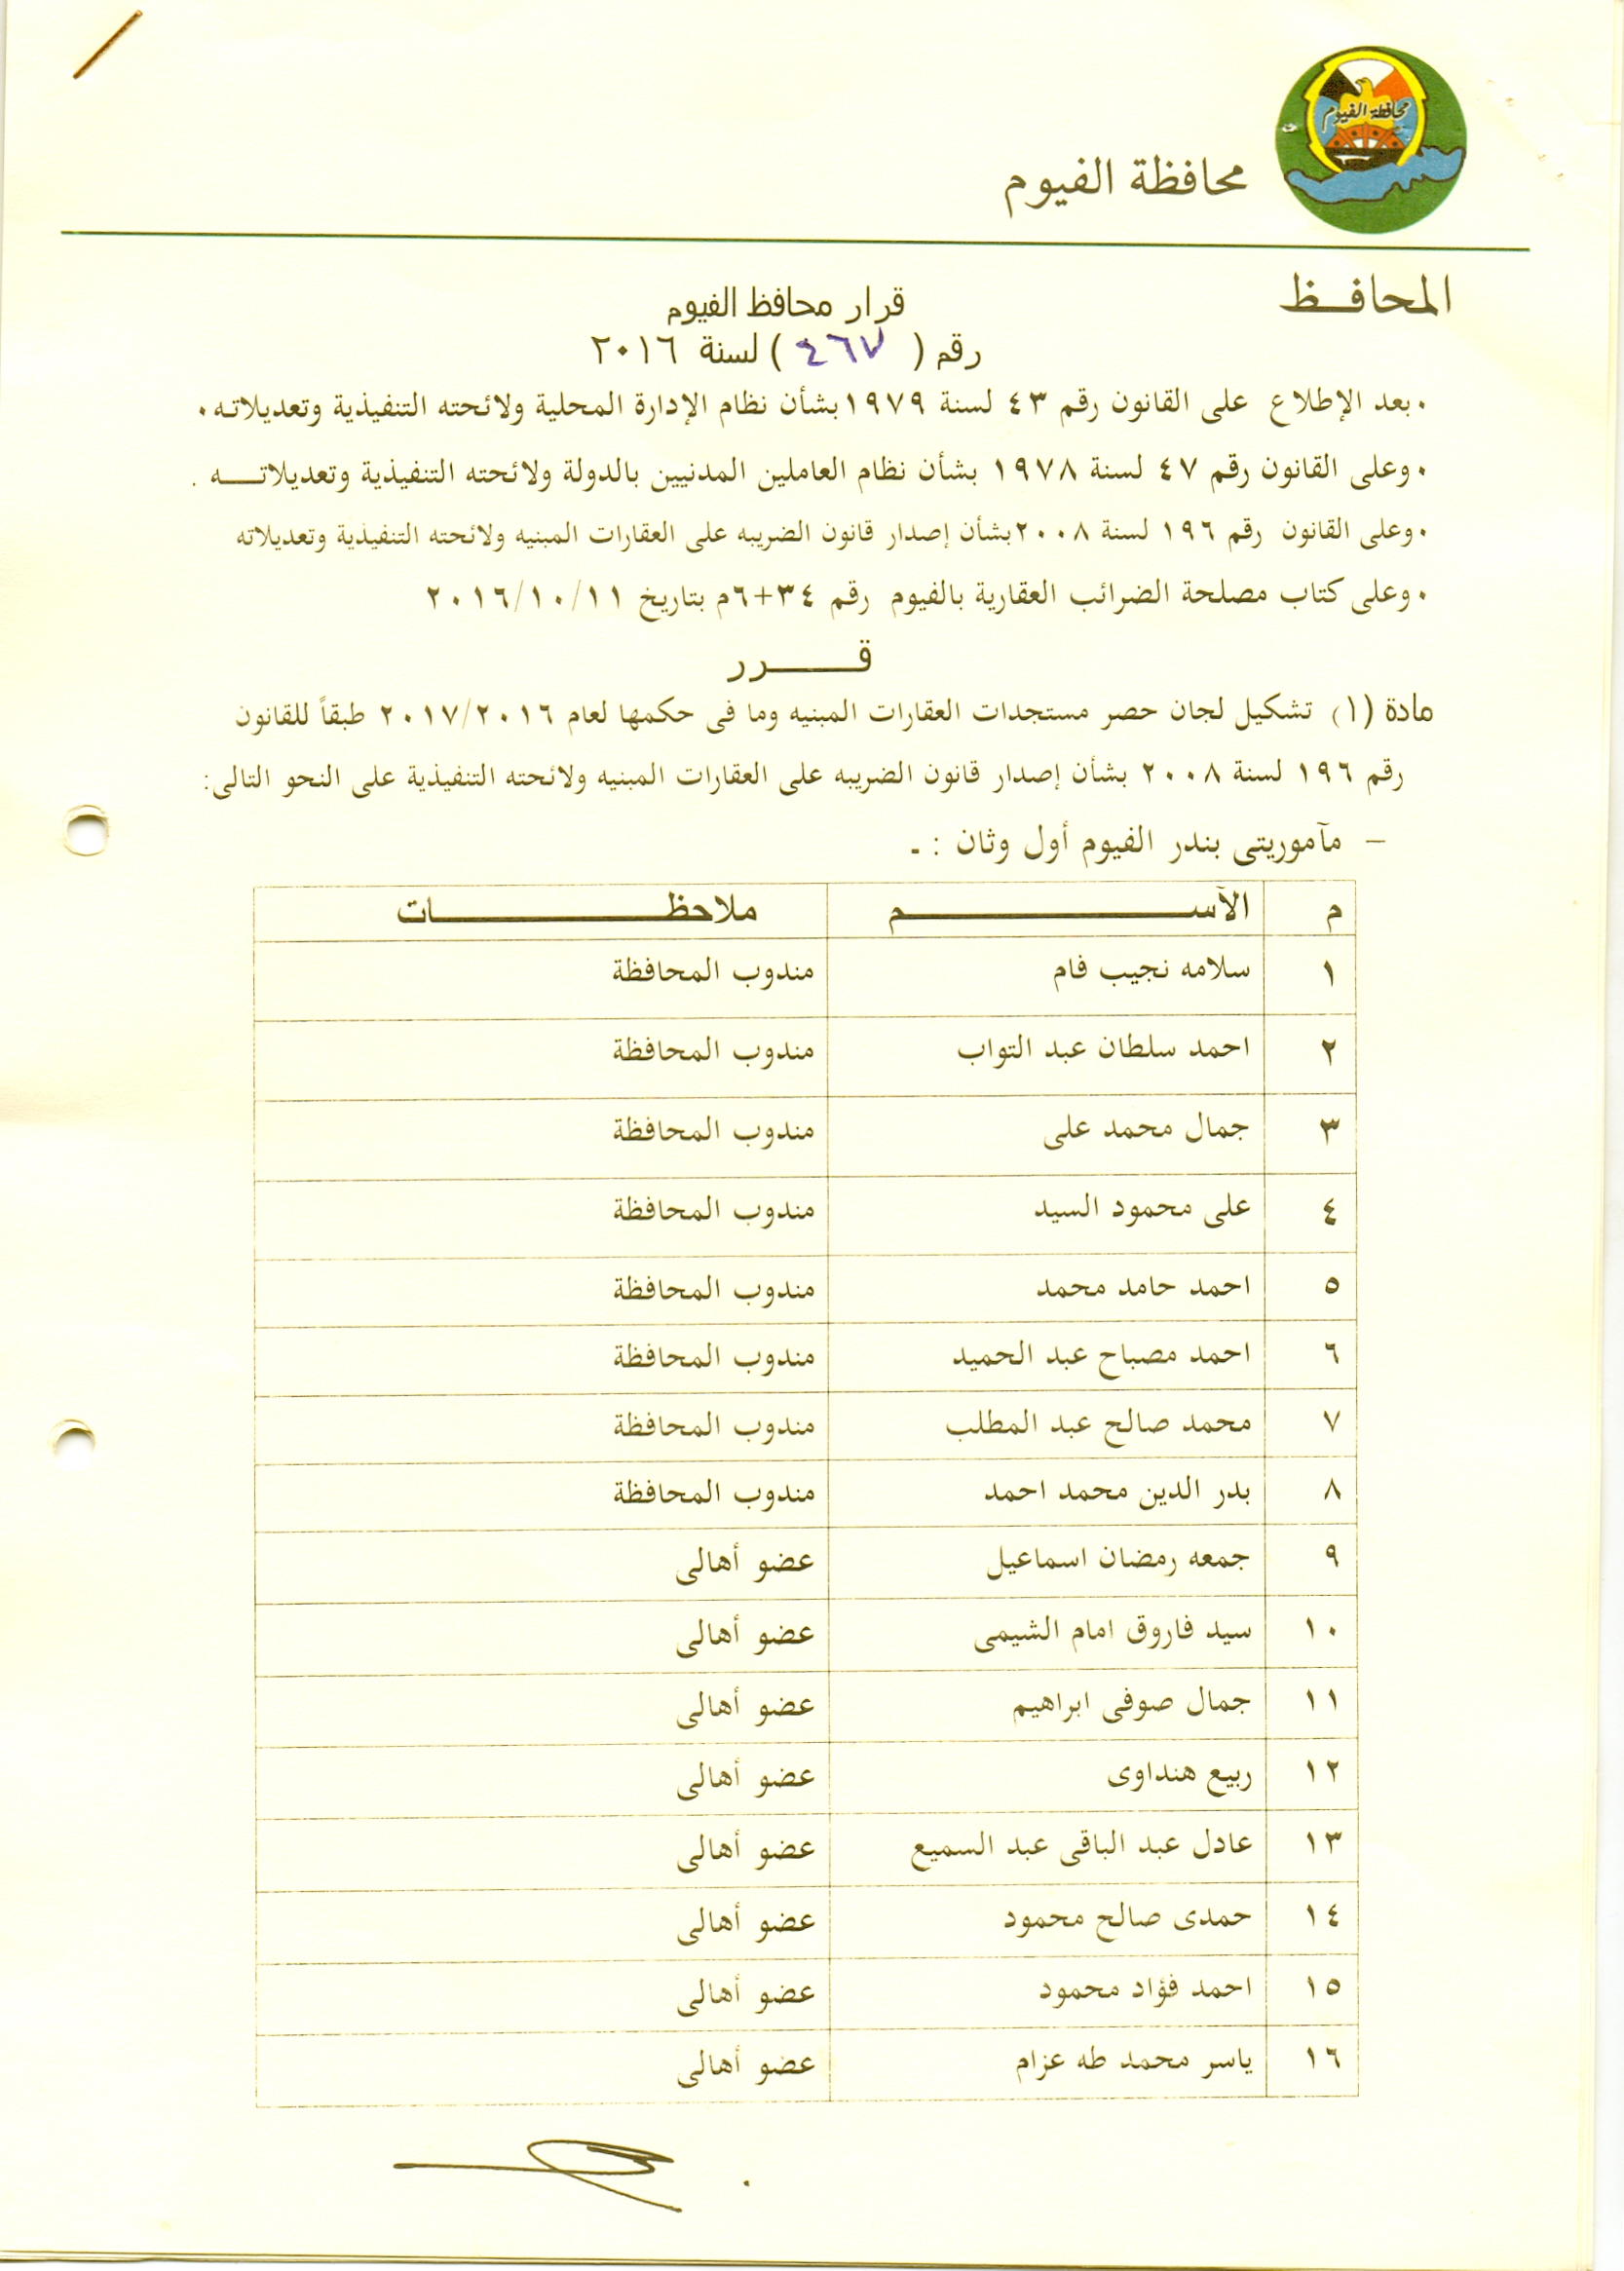 محافظة الفيوم
محافظة الفيوم
المحافـــظ
قرار محافظ الفيوم
رقم ( ٤٦٧ ) لسنة ٢٠١٦
٠ بعد الإطلاع على القانون رقم ٤٣ لسنة ١٩٧٩ بشأن نظام الإدارة المحلية ولائحته التنفيذية وتعديلاته ٠
٠ وعلى القانون رقم ٤٧ لسنة ١٩٧٨ بشأن نظام العاملين المدنيين بالدولة ولائحته التنفيذية وتعديلاتـــه .
٠ وعلى القانون رقم ١٩٦ لسنة ٢٠٠٨ بشأن إصدار قانون الضريبه على العقارات المبنيه ولائحته التنفيذية وتعديلاته
٠ وعلى كتاب مصلحة الضرائب العقارية بالفيوم رقم ٣٤+٦م بتاريخ ٢٠١٦/١٠/١١
قـــــرر
مادة (١) تشكيل لجان حصر مستجدات العقارات المبنيه وما فى حكمها لعام ٢٠١٧/٢٠١٦ طبقاً للقانون
رقم ١٩٦ لسنة ٢٠٠٨ بشأن إصدار قانون الضريبه على العقارات المبنيه ولائحته التنفيذية على النحو التالى:
– مآموريتى بندر الفيوم أول وثان : ـ
م الآســـــــــــم ملاحظـــــــــــات
١ سلامه نجيب فام مندوب المحافظة
٢ احمد سلطان عبد التواب مندوب المحافظة
٣ جمال محمد على مندوب المحافظة
٤ على محمود السيد مندوب المحافظة
٥ احمد حامد محمد مندوب المحافظة
٦ احمد مصباح عبد الحميد مندوب المحافظة
٧ محمد صالح عبد المطلب مندوب المحافظة
٨ بدر الدين محمد احمد مندوب المحافظة
٩ جمعه رمضان اسماعيل عضو أهالى
١٠ سيد فاروق امام الشيمى عضو أهالى
١١ جمال صوفى ابراهيم عضو أهالى
١٢ ربيع هنداوى عضو أهالى
١٣ عادل عبد الباقى عبد السميع عضو أهالى
١٤ حمدى صالح محمود عضو أهالى
١٥ احمد فؤاد محمود عضو أهالى
١٦ ياسر محمد طه عزام عضو أهالى